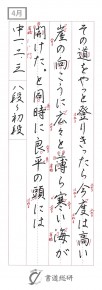 4月
その道をやっと登りきったら今度は高い
崖の向こうに広々と薄ら寒い海が
開けた。と同時に良平の頭には
中一、二、三 八段〜初段
書道総研